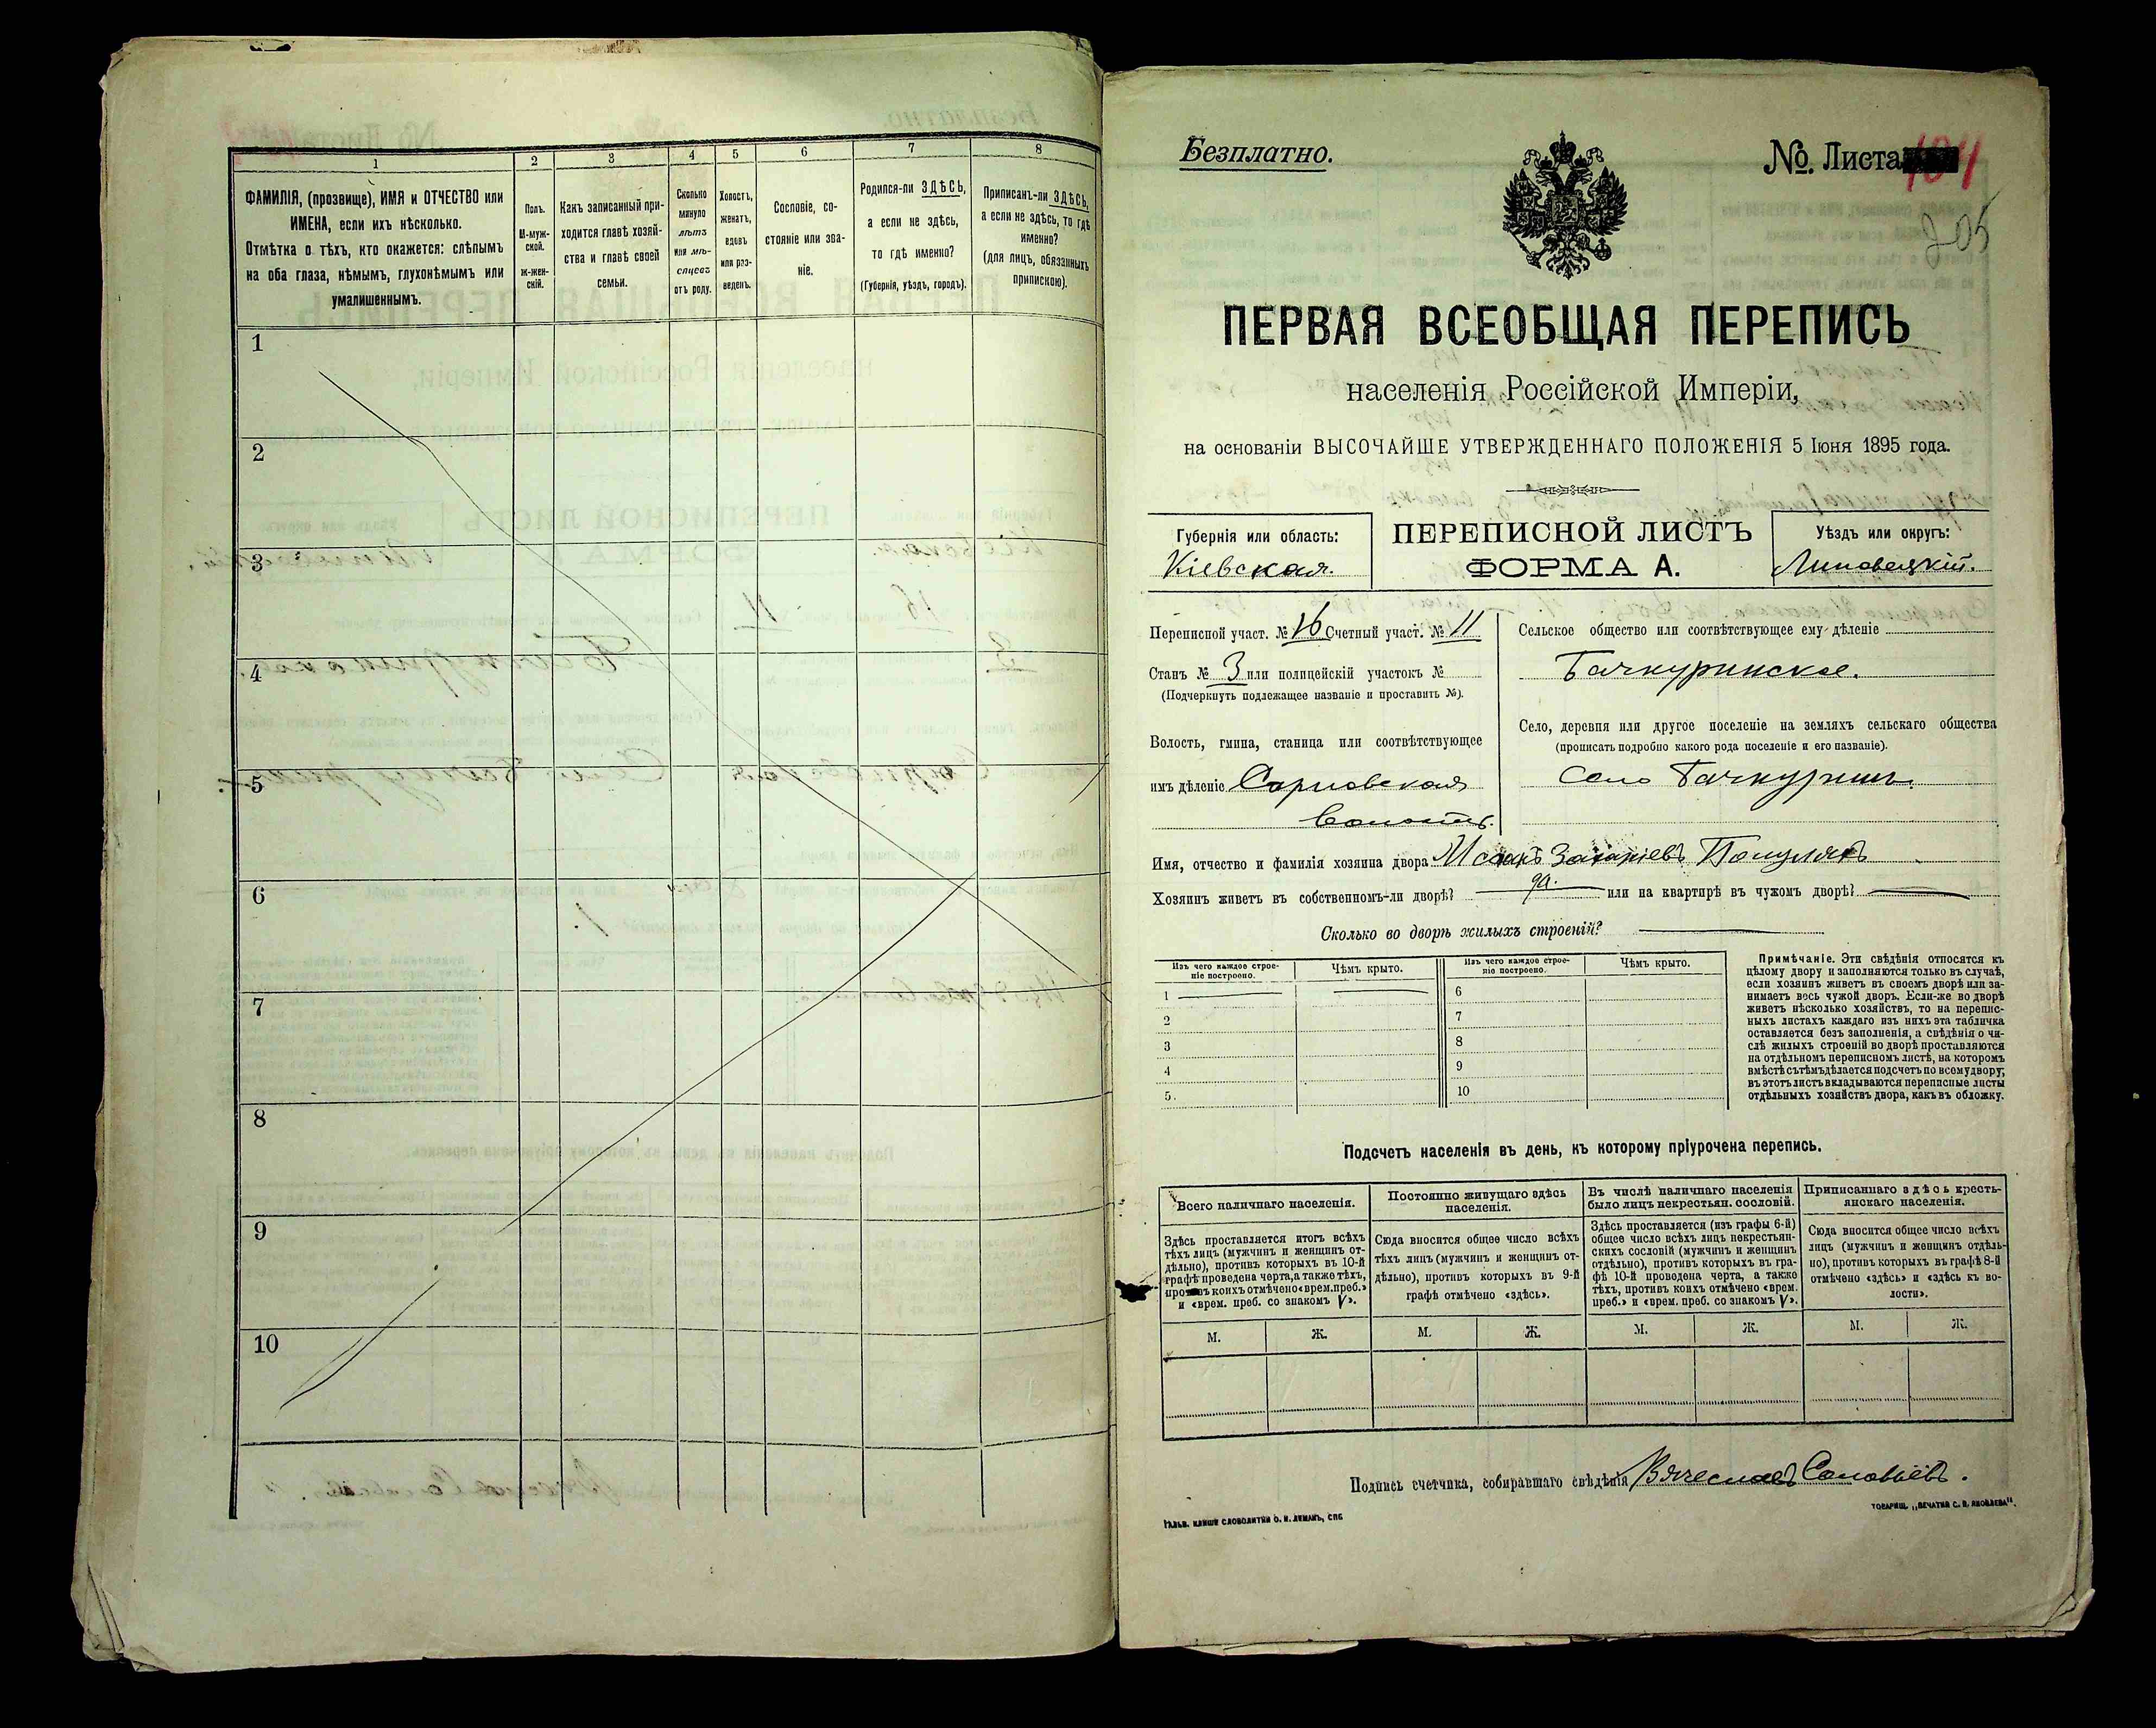 1
2
3
4
5
6
7
8
ФАМИЛІЯ, (прозвище), ИМЯ и ОТЧЕСТВО или
ИМЕНА, если ихъ нѣсколько.
Отмѣтка о тѣхъ, кто окажется: слѣпымъ
на оба глаза, нѣмымъ, глухонѣмымъ или
умалишеннымъ.
Полъ.
М-муж-
ской.
Ж-жен-
скій.
Какъ записанный при-
ходится главѣ хозяй-
ства и главѣ своей
семьи.
Сколько
минуло
лѣтъ
или мѣ-
сяцевъ
отъ роду.
Холостъ,
женатъ,
вдовъ
или раз-
веденъ.
Сословіе, со-
стояніе или зва-
ніе.
Родился-ли ЗДѢСЬ,
а если не здѣсь,
то гдѣ именно?
(Губернія, уѣздъ, городъ).
Приписанъ-ли ЗДѢСЬ,
а если не здѣсь, то гдѣ
именно?
(для лицъ, обязанныхъ
припискою).
1
2
3
4
5
6
7
8
9
10
Безплатно.
№. Листа 104
205
ПЕРВАЯ ВСЕОБЩАЯ ПЕРЕПИСЬ
населенія Россійской Имперіи,
на основаніи ВЫСОЧАЙШЕ УТВЕРЖДЕННАГО ПОЛОЖЕНІЯ 5 Іюня 1895 года.
Губернія или область:
Кіевская.
ПЕРЕПИСНОЙ ЛИСТЪ
ФОРМА А.
Уѣздъ или округъ:
Липовецкій.
Переписной участ. № 16 Счетный участ. № 11
Станъ № 3 или полицейскій участокъ №
(Подчеркнуть подлежащее названіе и проставить №).
Волость, гмина, станица или соотвѣтствующее
имъ дѣленіе Сарновская
волость.
Сельское общество или соотвѣтствующее ему дѣленіе
Бачкуринское.
Село, деревня или другое поселеніе на земляхъ сельскаго общества
(прописать подробно какого рода поселеніе и его названіе).
Село Бачкуринъ.
Имя, отчество и фамилія хозяина двора Исаакъ Захаріевъ
Хозяинъ живетъ въ собственномъ-ли дворѣ? да. или на квартирѣ въ чужомъ дворѣ?
Сколько во дворѣ жилыхъ строеній?
Изъ чего каждое строе-
ніе построено.
Чѣмъ крыто.
Изъ чего каждое строе-
ніе построено.
Чѣмъ крыто.
1
2
3
4
5.
6
7
8
9
10
Примѣчаніе. Эти свѣдѣнія относятся къ
цѣлому двору и заполняются только въ случаѣ,
если хозяинъ живетъ въ своемъ дворѣ или за-
нимаетъ весь чужой дворъ. Если-же во дворѣ
живетъ нѣсколько хозяйствъ, то на перепис-
ныхъ листахъ каждаго изъ нихъ эта табличка
оставляется безъ заполненія, а свѣдѣнія о чи-
слѣ жилыхъ строеній во дворѣ проставляются
на отдѣльномъ переписномъ листѣ, на которомъ
вмѣстѣ съ тѣмъ дѣлается подсчетъ по всему двору;
въ этотъ листъ вкладываются переписные листы
отдѣльныхъ хозяйствъ двора, какъ въ обложку.
Подсчетъ населенія въ день, къ которому пріурочена перепись.
Всего наличнаго населенія.
Постоянно живущаго здѣсь
населенія.
Въ числѣ наличнаго населенія
было лицъ некрестьян. сословій.
Приписаннаго здѣсь кресть-
янскаго населенія.
Здѣсь проставляется итогъ всѣхъ
тѣхъ лицъ (мужчинъ и женщинъ от-
дѣльно), противъ которыхъ въ 10-й
графѣ проведена черта, а также тѣхъ,
противъ коихъ отмѣчено «врем. преб.»
и «врем. преб. со знакомъ V».
Сюда вносится общее число всѣхъ
тѣхъ лицъ (мужчинъ и женщинъ от-
дѣльно), противъ которыхъ въ 9-й
графѣ отмѣчено «здѣсь».
Здѣсь проставляется (изъ графы 6-й)
общее число всѣхъ лицъ некрестьян-
скихъ сословій (мужчинъ и женщинъ
отдѣльно), противъ которыхъ въ гра-
фѣ 10-й проведена черта, а также
тѣхъ, противъ коихъ отмѣчено «врем.
преб.» и «врем. преб. со знакомъ V».
Сюда вносится общее число всѣхъ
лицъ (мужчинъ и женщинъ отдѣль-
но), противъ которыхъ въ графѣ 8-й
отмѣчено «здѣсь» и «здѣсь къ во-
лости».
М.
Ж.
М.
Ж.
М.
Ж.
М.
Ж.
Подпись счетчика, собиравшаго свѣдѣнія Вячеславъ Соловьевъ.
ГАЛЬВ. КЛИШЕ СЛОВОЛИТНИ О. И. ЛЕМАНЪ, СПБ
ТОВАРИЩ. „ПЕЧАТНЯ С. П. ЯКОВЛЕВА".